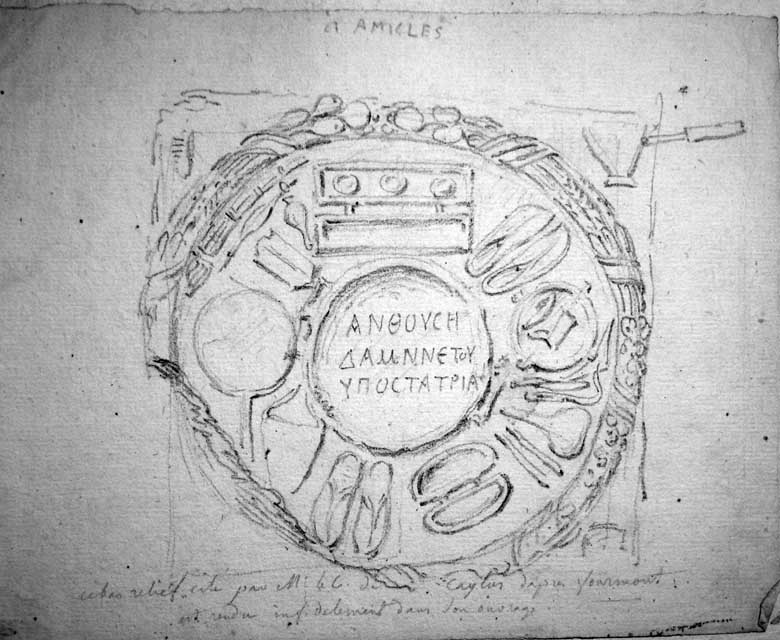 à AMICLES
ΑΝΘΟΥCΗ
ΔΑΜΝΝΕΤΟΥ
ΥΠΟCΤΑΤΡΙΑ
ce bas relief cité par Mr le C. de Caylus d'apres fourmont
est rendu infidelement dans son ouvrage.